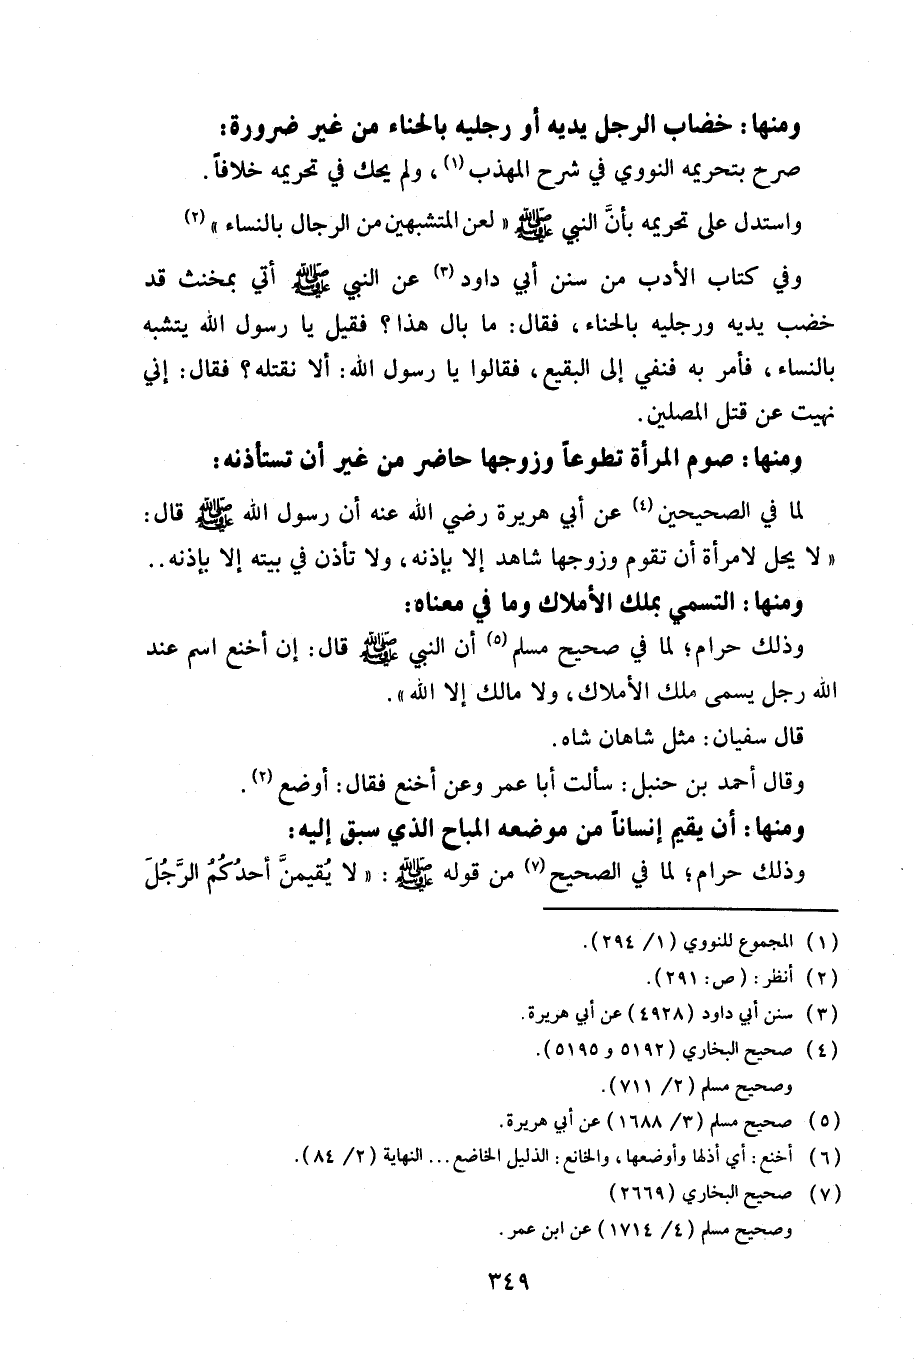 ومنها: خضاب الرجل يديه أو رجليه بالحناء من غير ضرورة:
صرح بتحريمه النووي في شرح المهذب (١)، ولم يحك في تحريمه خلافاً.
واستدل على تحريمه بأنَّ النبي ﷺ « لعن المتشبهين من الرجال بالنساء » (٢)
وفي كتاب الأدب من سنن أبي داود (٣) عن النبي ﷺ أتي بمخنث قد
خضب يديه ورجليه بالحناء، فقال: ما بال هذا؟ فقيل يا رسول الله يتشبه
بالنساء، فأمر به فنفي إلى البقيع، فقالوا يا رسول الله: ألا نقتله؟ فقال: إني
نهيت عن قتل المصلين.
ومنها: صوم المرأة تطوعاً وزوجها حاضر من غير أن تستأذنه:
لما في الصحيحين (٤) عن أبي هريرة رضي الله عنه أن رسول الله ﷺ قال:
« لا يحل لامرأة أن تقوم وزوجها شاهد إلا بإذنه، ولا تأذن في بيته إلا بإذنه..
ومنها: التسمي بملك الأملاك وما في معناه:
وذلك حرام؛ لما في صحيح مسلم (٥) أن النبي ﷺ قال: إن أخنع اسم عند
الله رجل يسمى ملك الأملاك، ولا مالك إلا الله».
قال سفيان: مثل شاهان شاه.
وقال أحمد بن حنبل: سألت أبا عمر وعن أخنع فقال: أوضع (٢).
ومنها: أن يقيم إنساناً من موضعه المباح الذي سبق إليه:
وذلك حرام؛ لما في الصحيح (٧) من قوله ﷺ : « لا يُقيمنَّ أحدُكُمُ الرَّجُلَ
(١) المجموع للنووي (١/ ٢٩٤).
(٢) أنظر: (ص: ٢٩١).
(٣) سنن أبي داود (٤٩٢٨) عن أبي هريرة.
(٤) صحيح البخاري (٥١٩٢ و ٥١٩٥).
وصحيح مسلم (٢/ ٧١١).
(٥) صحيح مسلم (٣/ ١٦٨٨) عن أبي هريرة.
(٦) أخنع: أي أذلها وأوضعها، والخانع: الذليل الخاضع... النهاية (٢/ ٨٤).
(٧) صحيح البخاري (٢٦٦٩)
وصحيح مسلم (٤/ ١٧١٤) عن ابن عمر.
٣٤٩